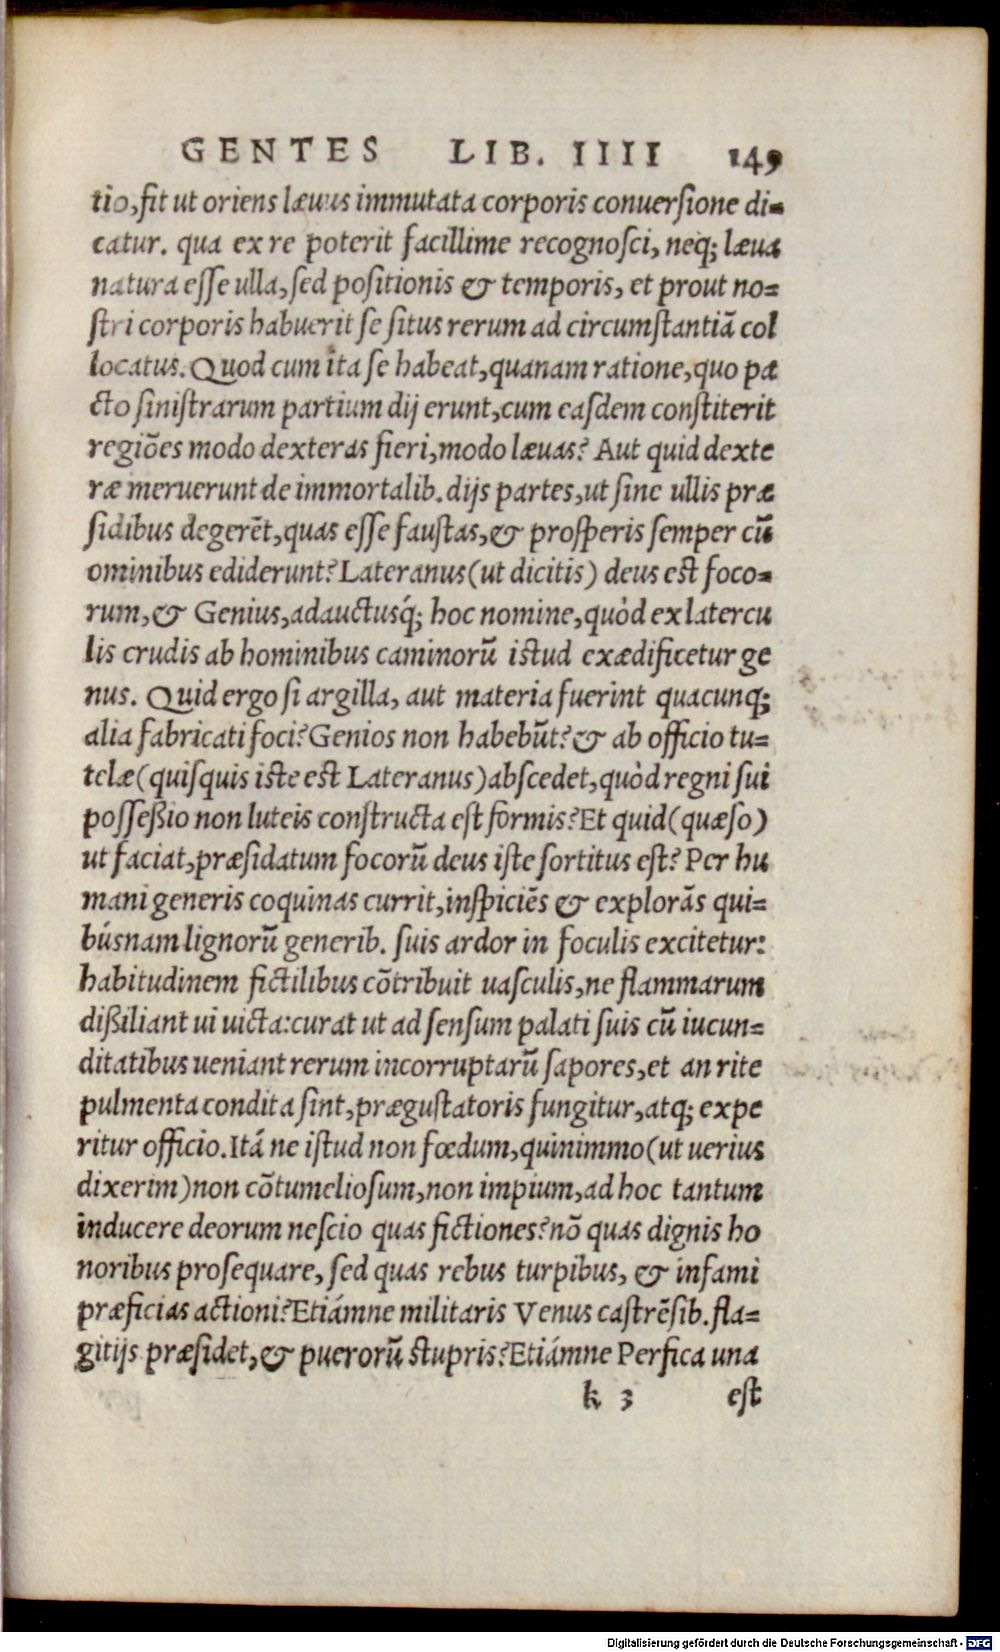 GENTES LIB. IIII 149
tio, fit ut oriens læuus immutata corporis conuersione di=
catur. qua ex re poterit facillime recognosci, neq; læua
natura esse ulla, sed positionis & temporis, et prout no=
stri corporis habuerit se situs rerum ad circumstantiā col
locatus. Quod cum ita se habeat, quanam ratione, quo pa
cto sinistrarum partium dij erunt, cum easdem constiterit
regiōes modo dexteras fieri, modo læuas? Aut quid dexte
ræ meruerunt de immortalib. dijs partes, ut sine ullis præ
sidibus degerēt, quas esse faustas, & prosperis semper cū
ominibus ediderunt? Lateranus (ut dicitis) deus est foco=
rum, & Genius, adauctusq́; hoc nomine, quòd ex latercu
lis crudis ab hominibus caminorū istud exædificetur ge
nus. Quid ergo si argilla, aut materia fuerint quacunq;
alia fabricati foci? Genios non habebūt? & ab officio tu=
telæ (quisquis iste est Lateranus) abscedet, quòd regni sui
posseßio non luteis constructa est formis? Et quid (quæso)
ut faciat, præsidatum focorū deus iste sortitus est? Per hu
mani generis coquinas currit, inspiciēs & explorās qui=
búsnam lignorū generib. suis ardor in foculis excitetur:
habitudinem fictilibus cōtribuit uasculis, ne flammarum
dißiliant ui uicta: curat ut ad sensum palati suis cū iucun=
ditatibus ueniant rerum incorruptarū sapores, et an rite
pulmenta condita sint, prægustatoris fungitur, atq; expe
ritur officio. Itá ne istud non fœdum, quinimmo (ut uerius
dixerim) non cōtumeliosum, non impium, ad hoc tantum
inducere deorum nescio quas fictiones? nō quas dignis ho
noribus prosequare, sed quas rebus turpibus, & infami
præficias actioni? Etiámne militaris Venus castrēsib. fla=
gitijs præsidet, & puerorū stupris? Etiámne Perfica una
k 3 est
Digitalisierung gefördert durch die Deutsche Forschungsgemeinschaft - DFG